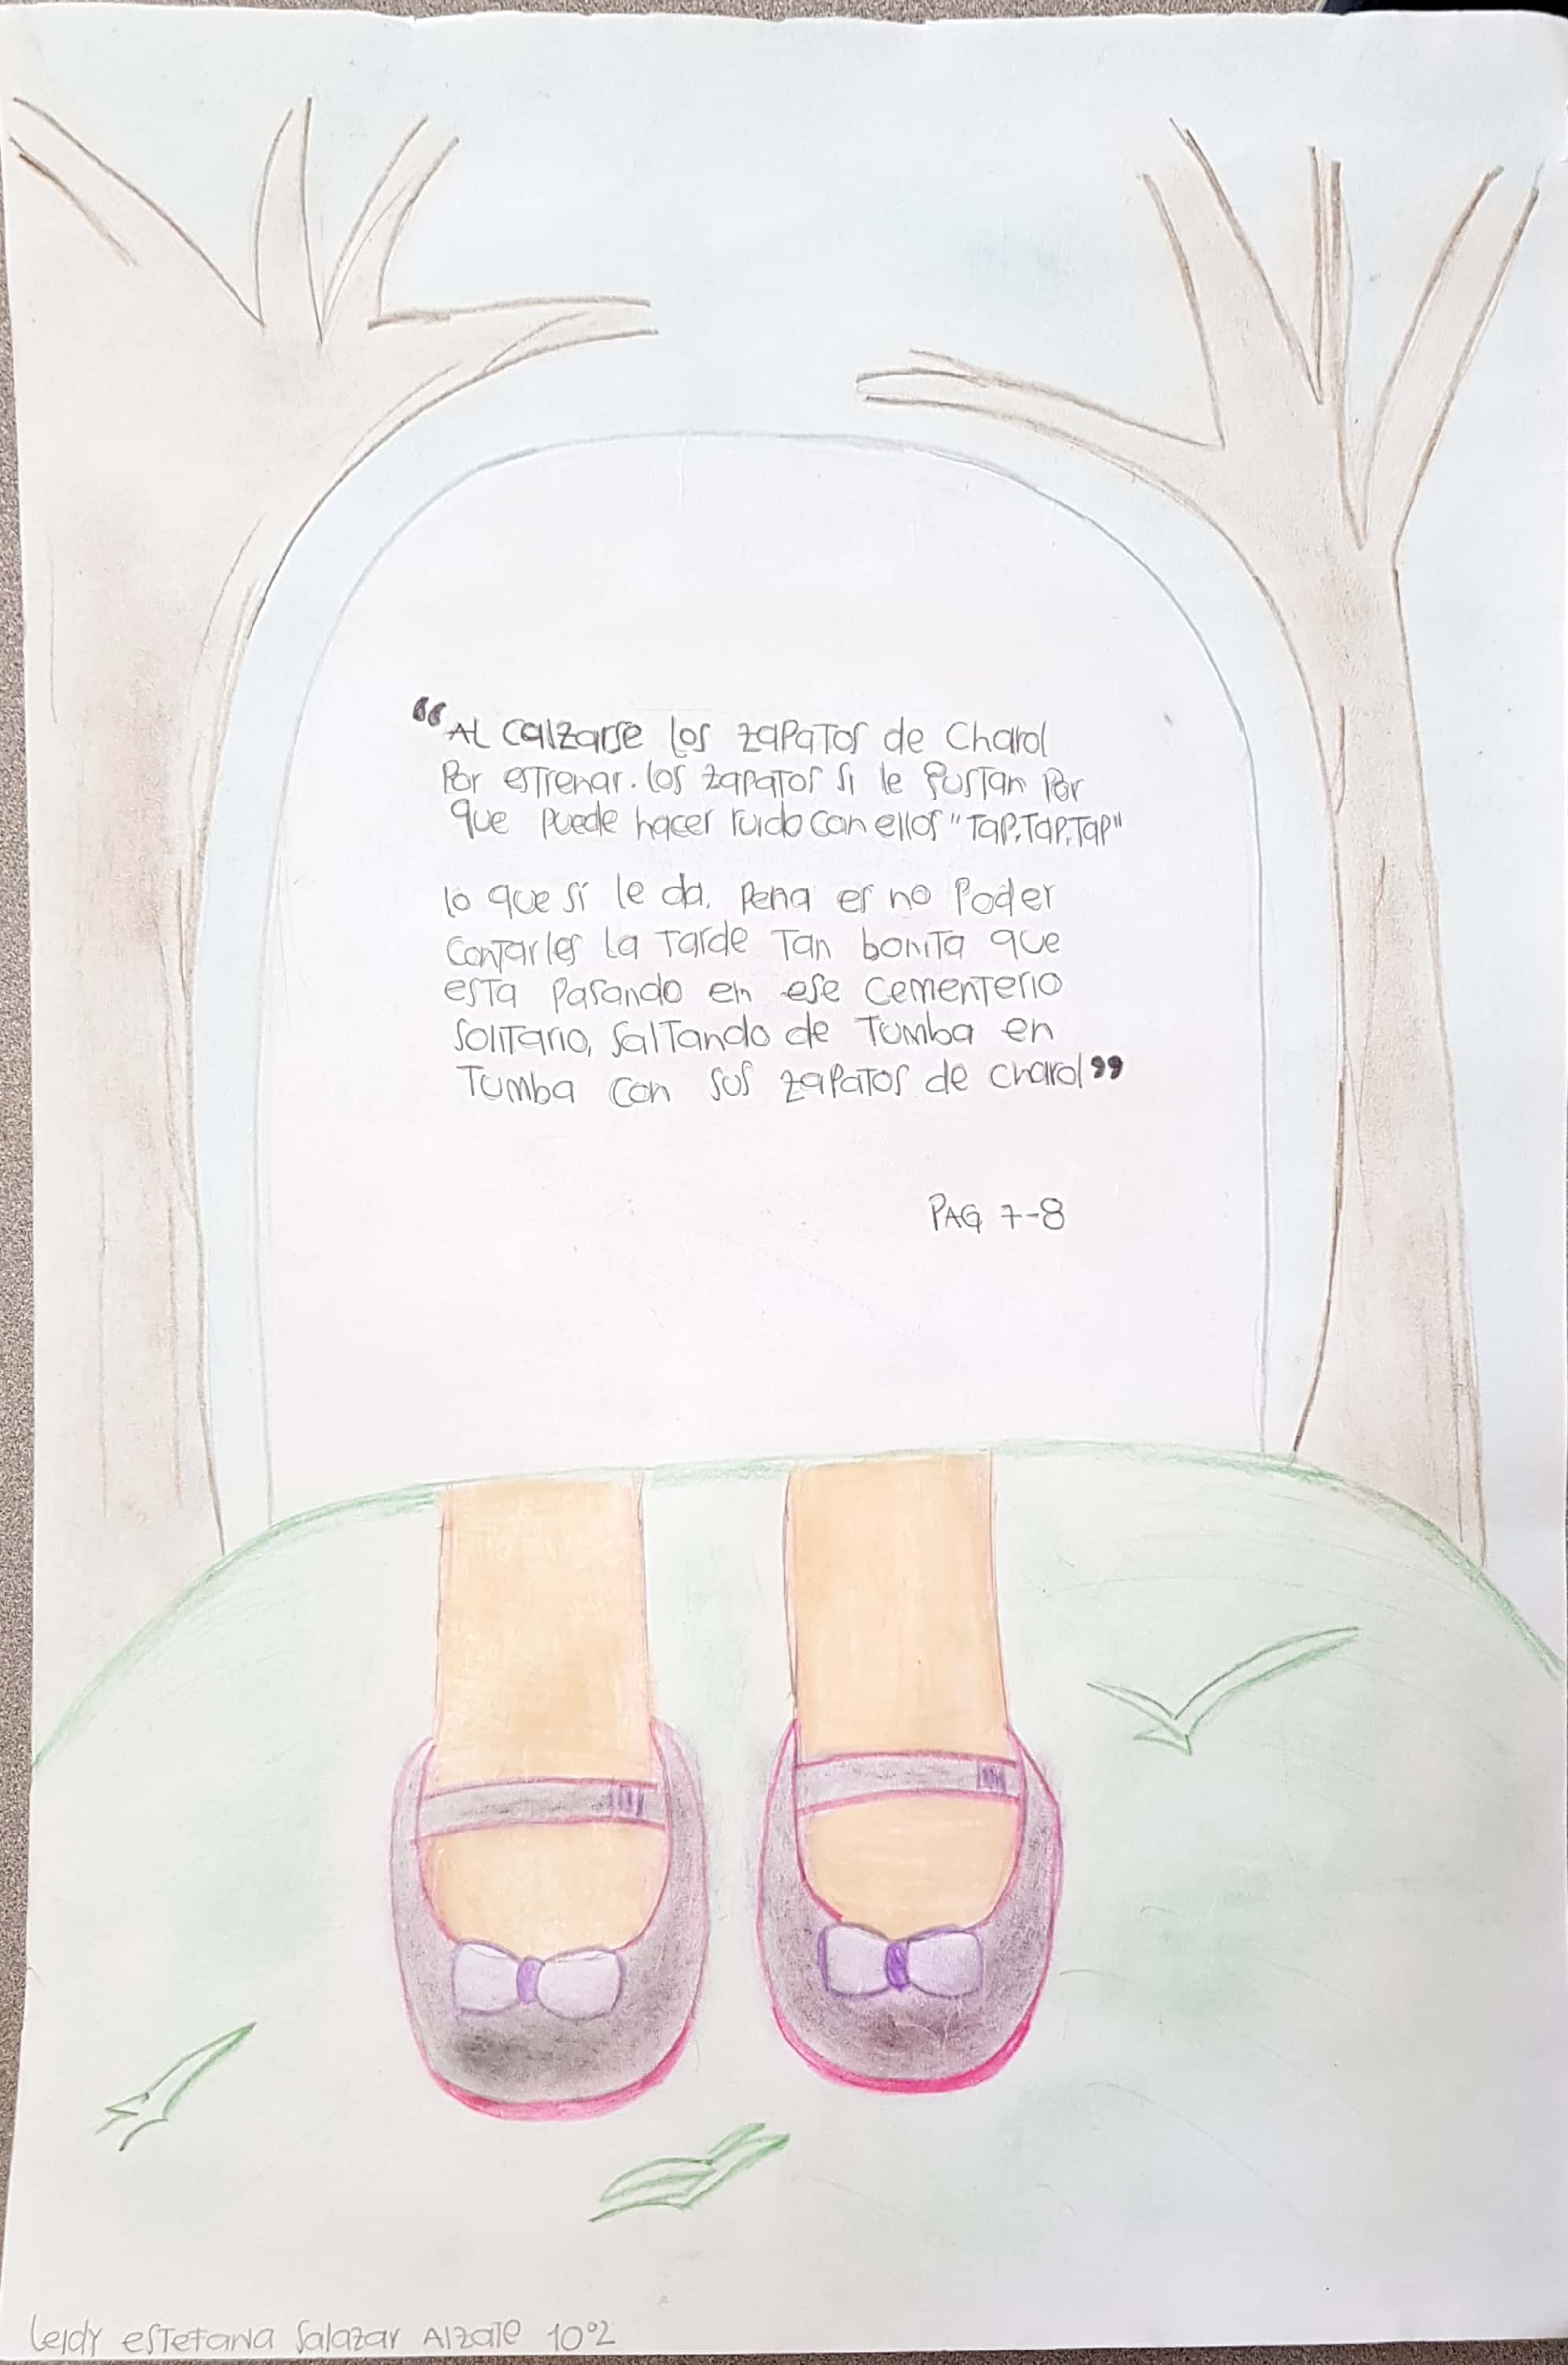 “Al calzarse los zapatos de charol
Por estrenar. los zapatos si le gustan Por
que puede hacer ruido con ellos "Tap,Tap,Tap"
lo que sí le da, Pena es no Poder
Contarles la tarde tan bonita que
esta Pasando en ese cementerio
Solitario, saltando de tumba en
Tumba con sus zapatos de charol”
PAG 7-8
Leidy estefania Salazar Alzate 10°2